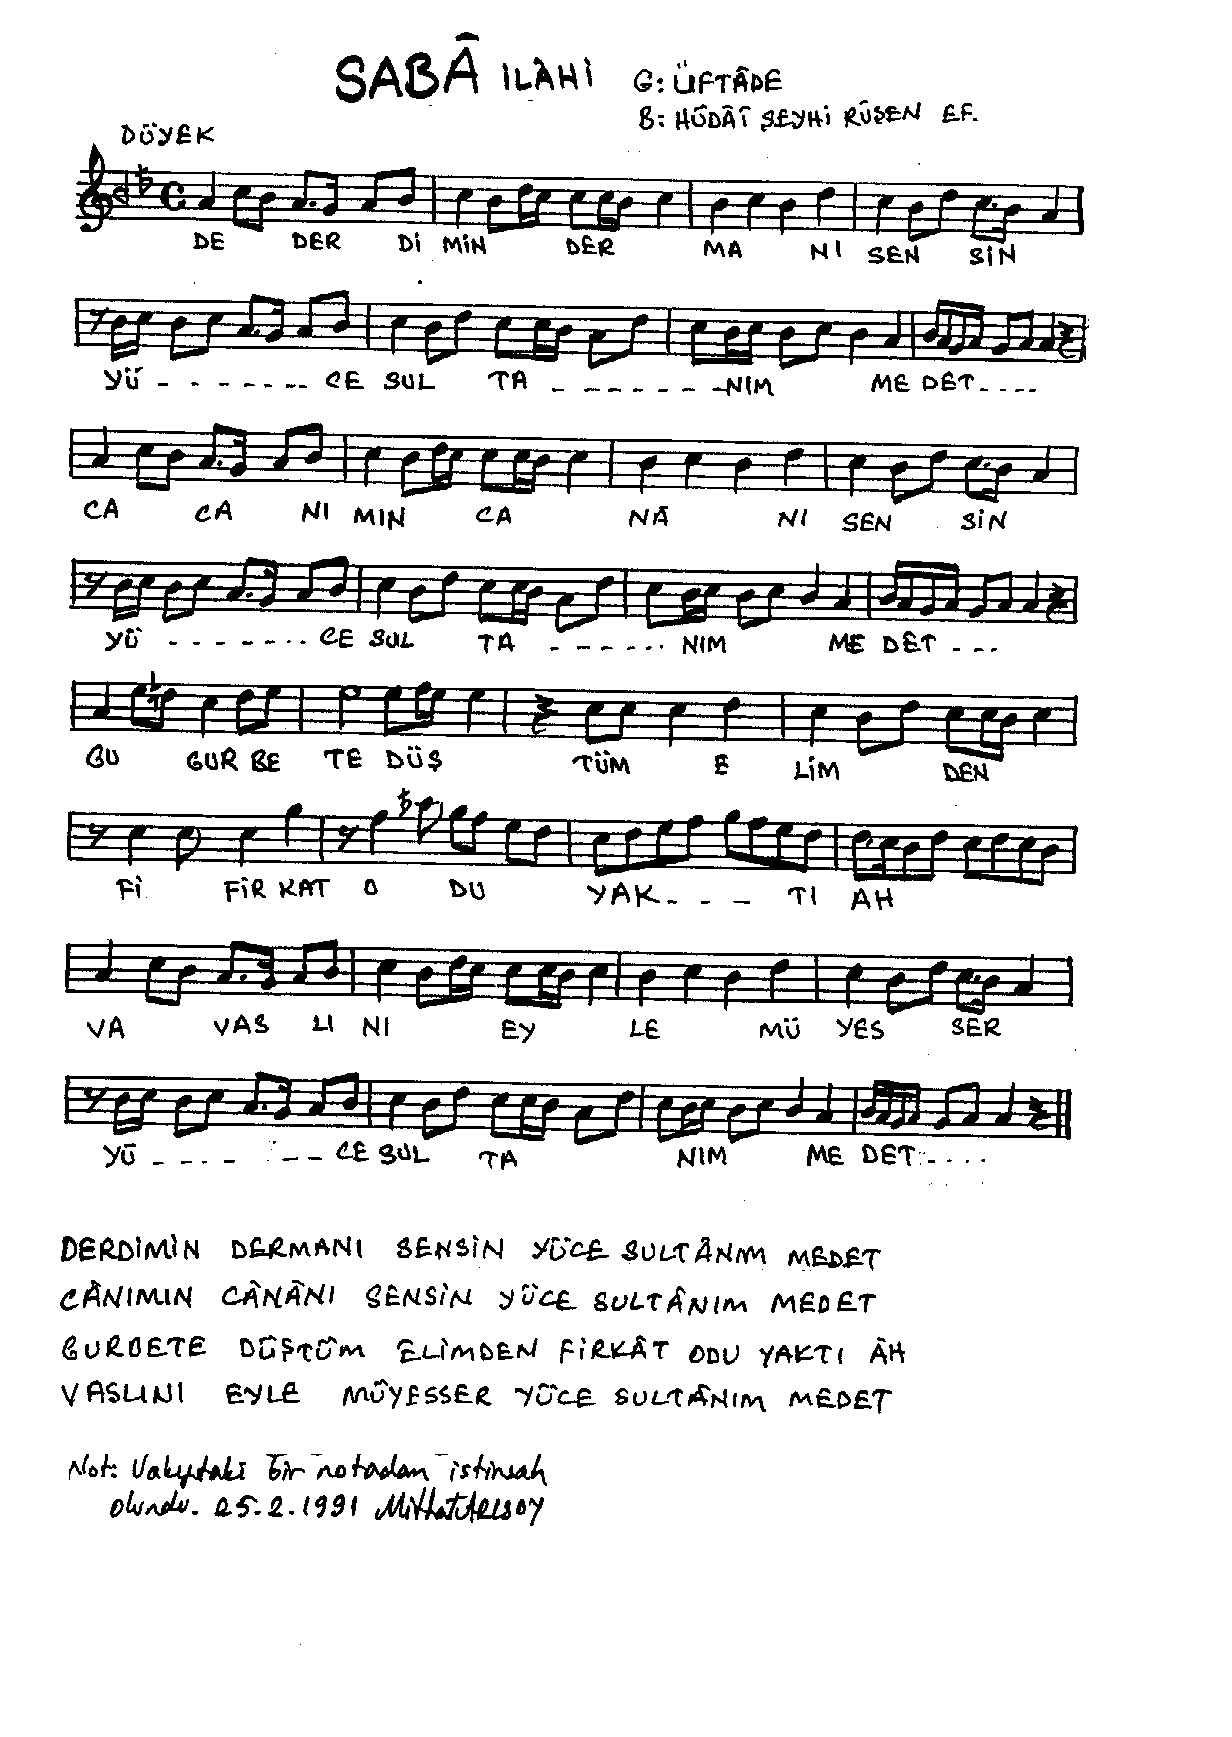 SABÂ İLÀHİ G: ÜFTÂDE
B: HÜDÂÎ ŞEYHİ RÛŞEN EF.
DÜYEK
DE DER Dİ MİN DER MA NI SEN SİN
YÜ - - - - - - - CE SUL TA - - - - - - - NIM ME DET - - - -
CA CA NI MIN CA NÂ NI SEN SİN
YÜ - - - - - - - CE SUL TA - - - - - - NIM ME DET - - -
GU GUR BE TE DÜŞ TÜM E LİM DEN
Fİ FİR KAT O DU YAK - - - TI AH
VA VAS LI NI EY LE MÜ YES SER
YÜ - - - - - - - CE SUL TA NIM ME DET - - - -
DERDİMİN DERMANI SENSİN YÜCE SULTÂNIM MEDET
CÂNIMIN CÂNÂNI SENSİN YÜCE SULTÂNIM MEDET
GURBETE DÜŞTÜM ELİMDEN FİRKÂT ODU YAKTI ÂH
VASLINI EYLE MÜYESSER YÜCE SULTÂNIM MEDET
Not: Vakıftaki bir notadan istinsah
olundu. 25.2.1991